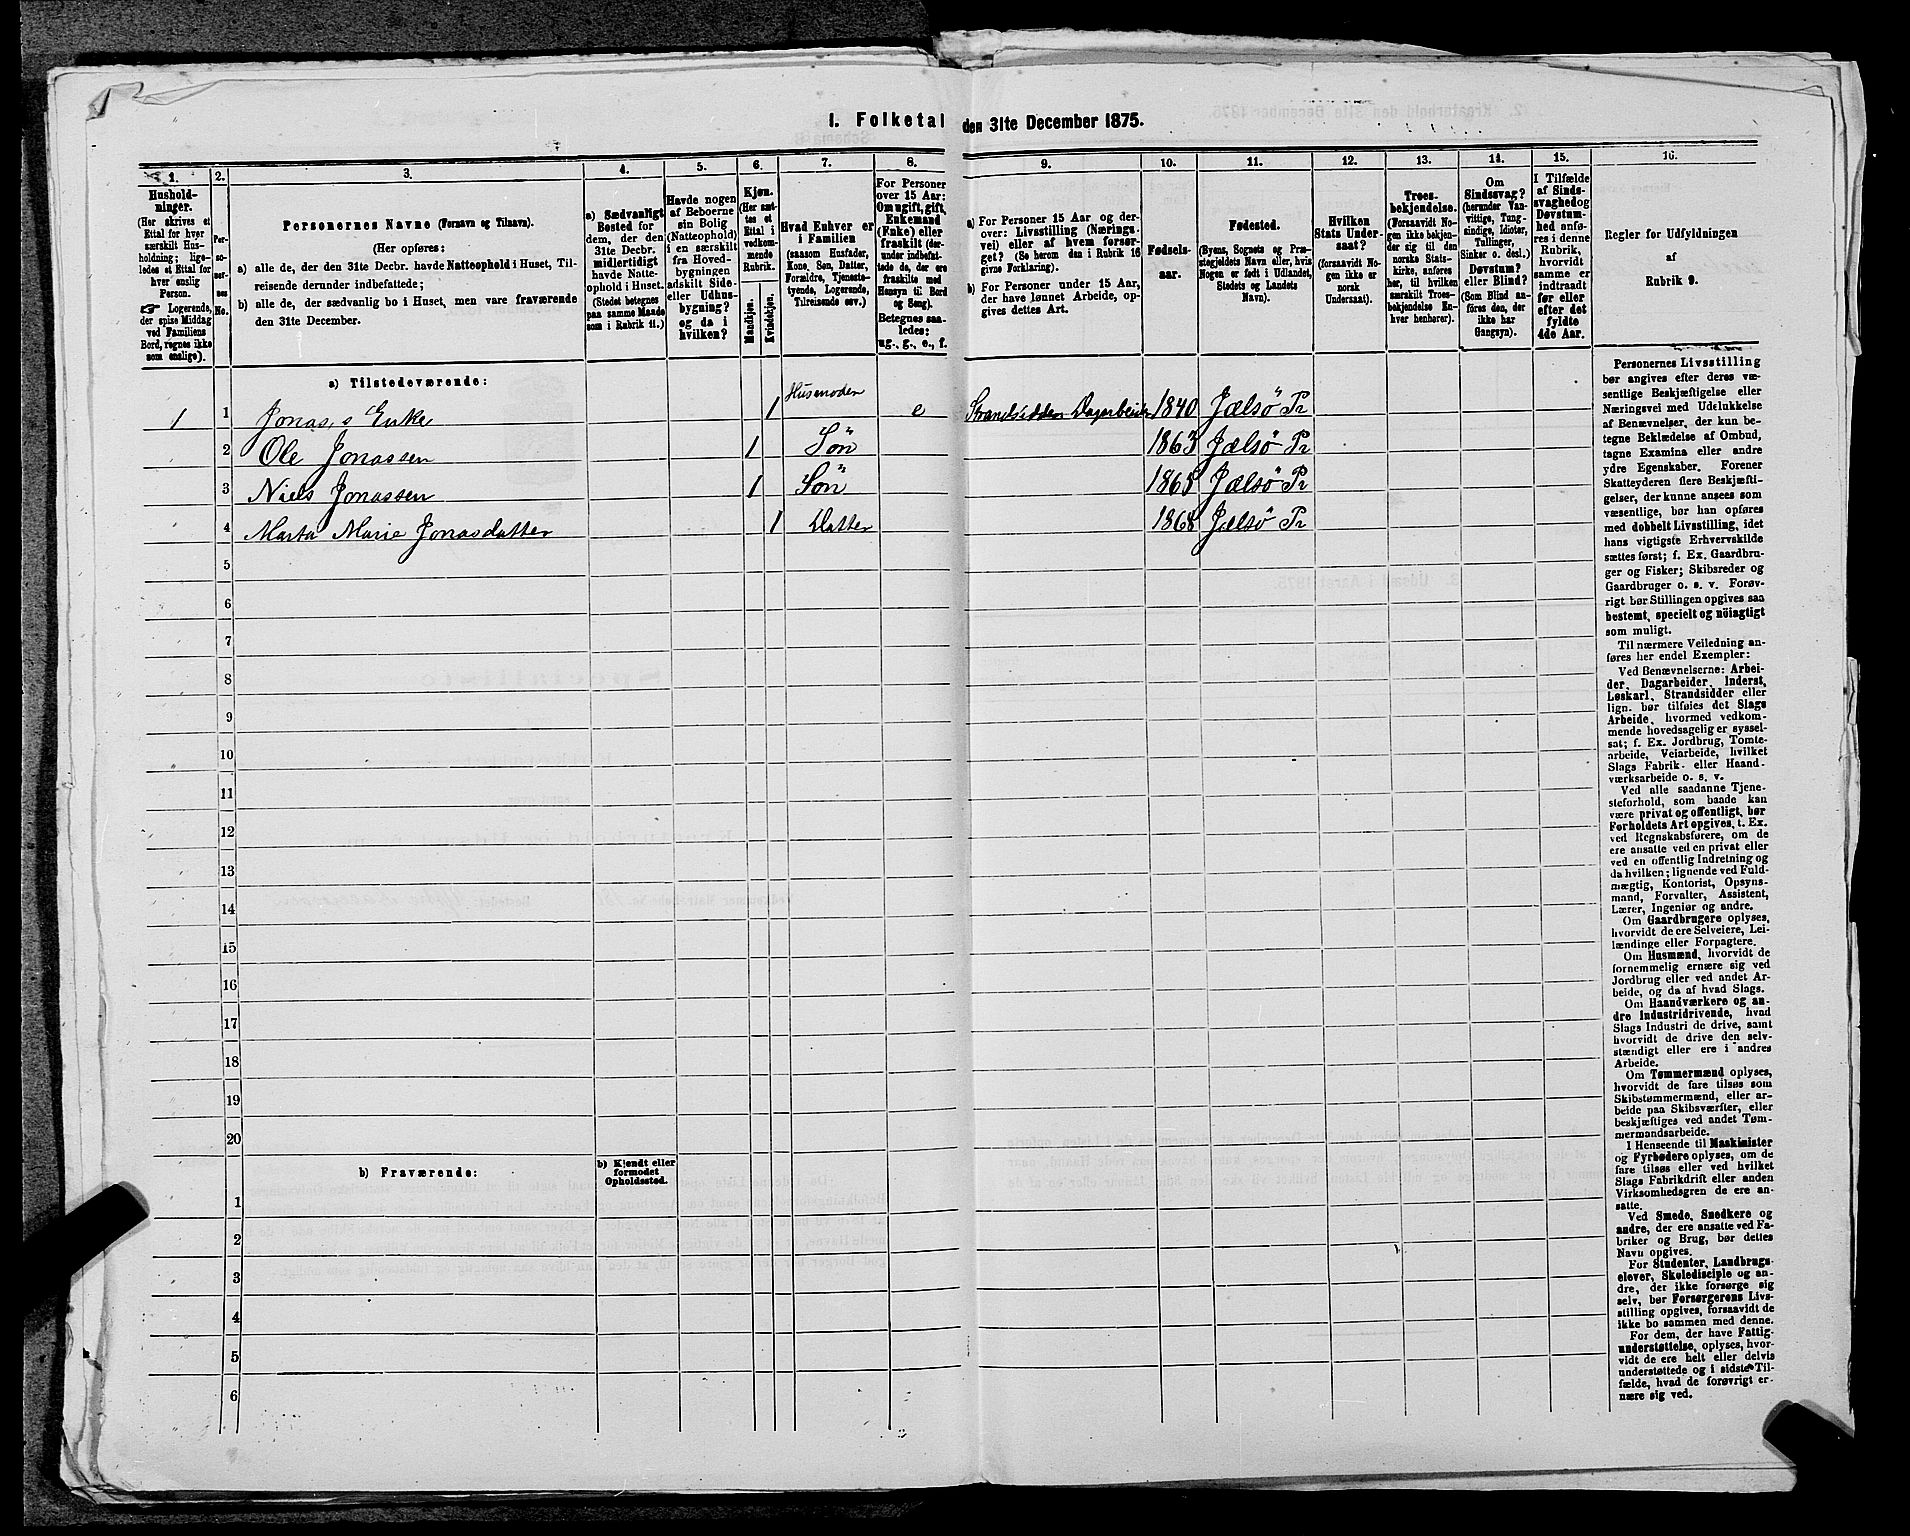 1. Folketal den 31te December 1875.
1.
2.
3.
4.
5.
6.
7.
8.
9.
10.
11.
12.
13.
14.
15.
16.
Hushold-
ninger.
(Her skrives et
Ettal for hver
særskilt Hus-
holdning; lige-
ledes et Ettal for
hver enslig
Person.
☞ Logerende,
der spise Middag
ved Familiens
Bord, regnes ikke
som enslige).
Per-
so-
ner-
nes
No.
Personernes Navne (Fornavn og Tilnavn).
(Her opføres:
a) alle de, der den 31te Decbr. havde Natteophold i Huset, Til-
reisende derunder indbefattede;
b) alle de, der sædvanlig bo i Huset, men vare fraværende
den 31te December.
a) Sædvanligt
Bosted for
dem, der den
31te Decbr.
midlertidigt
havde Natte-
ophold i Huset.
(Stedet betegnes
paa samme Maade
som i Rubrik 11.)
Havde nogen
af Beboerne
sin Bolig
(Natteophold)
i en særskilt
fra Hoved-
bygningen
adskilt Side-
eller Udhus-
bygning?
og da i
hvilken?
Kjøn.
(Her sæt-
tes et
Ettal i
vedkom-
mende
Rubrik.
Mandkjøn.
Kvindekjøn.
Hvad Enhver er
i Familien
(saasom Husfader,
Kone, Søn, Datter,
Forældre, Tjeneste-
tyende, Logerende,
Tilreisende osv.)
For Personer
over 15 Aar:
Om ugift, gift,
Enkemand
(Enke) eller
fraskilt (der-
under indbefat-
tede de, der ere
fraskilte med
Hensyn til Bord
og Seng).
Betegnes saa-
ledes:
ug., g., e., f.
a) For Personer 15 Aar og der-
over: Livsstilling (Nærings-
vei) eller af hvem forsør-
get? (Se herom den i Rubrik 16
givne Forklaring).
b) For Personer under 15 Aar,
der have lønnet Arbeide, op-
gives dettes Art.
Fødsels-
aar.
Fødested.
(Byens, Sognets og Præ-
stegjeldets Navn eller, hvis
Nogen er født i Udlandet,
Stedets og Landets
Navn).
Hvilken
Stats Under-
saat?
(forsaavidt No-
gen ikke er
norsk
Undersaat).
Troes-
bekjendelse.
(Forsaavidt No-
gen ikke bekjen-
der sig til den
norske Stats-
kirke, anføres
her, til hvilken
særskilt Troes-
bekjendelse En-
hver henhører).
Om
Sindssvag?
(herunder Van-
vittige, Tung-
sindige, Idioter,
Tullinger,
Sinker o. desl.)
Døvstum?
eller Blind?
(Som Blind an-
føres den, der
ikke har
Gangsyn).
I Tilfælde
af Sinds-
svaghed og
Døvstum-
hed anfø-
res i denne
Rubrik,
hvorvidt
samme er
indtraadt
før eller
efter det
fyldte
4de Aar.
Regler for Udfyldningen
af
Rubrik 9.
a) Tilstedeværende:
1 1 Jonas,s Enke 1 Husmoder e Strandsidder Dagarbeider 1840 Jælsö Pr
2 Ole Jonassen 1 Sön 1863 Jælsö Pr
3 Niels Jonassen 1 Sön 1865 Jælsö Pr
4 Marta Marie Jonasdatter 1 Datter 1868 Jelsö Pr
5
6
7
8
9
10
11
12
13
14
15
16
17
18
19
20
b) Fraværende:
b) Kjendt eller
formodet
Opholdssted.
1
2
3
4
5
6
Personernes Livsstilling
bør angives efter deres væ-
sentlige Beskjæftigelse eller
Næringsvei med Udelukkelse
af Benævnelser, der kun be-
tegne Beklædelse af Ombud,
tagne Examina eller andre
ydre Egenskaber. Forener
Skatteyderen flere Beskjæfti-
gelser, der kunne ansees som
væsentlige, bør han opføres
med dobbelt Livsstilling, idet
hans vigtigste Erhvervskilde
sættes først; f. Ex. Gaardbru-
ger og Fisker; Skibsreder og
Gaardbruger o. s. v. Forøv-
rigt bør Stillingen opgives saa
bestemt, specielt og nöiagtigt
som muligt.
Til nærmere Veiledning an-
føres her endel Exempler:
Ved Benævnelserne: Arbei-
der, Dagarbeider, Inderst,
Løskarl, Strandsidder eller
lign. bør tilføies det Slags
Arbeide, hvormed vedkom-
mende hovedsagelig er syssel-
sat; f. Ex. Jordbrug, Tomte-
arbeide, Veiarbeide, hvilket
Slags Fabrik- eller Haand-
værksarbeide o. s. v.
Ved alle saadanne Tjene-
steforhold, som baade kan
være privat og offentligt, bør
Forholdets Art opgives, t. Ex.
ved Regnskabsførere, om de
ere ansatte ved en privat eller
ved en offentlig Indretning og
da hvilken; lignende ved Fuld-
mægtig, Kontorist, Opsyns-
mand, Forvalter, Assistent,
Lærer, Ingeniør og andre.
Om Gaardbrugere oplyses,
hvorvidt de ere Selveiere, Lei-
lændinge eller Forpagtere.
Om Husmænd, hvorvidt de
fornemmelig ernære sig ved
Jordbrug eller ved andet Ar-
beide, og da af hvad Slags.
Om Haandværkere og an-
dre Industridrivende, hvad
Slags Industri de drive, samt
hvorvidt de drive den selv-
stændigt eller ere i andres
Arbeide.
Om Tømmermænd oplyses,
hvorvidt de fare tilsøs som
Skibstømmermænd, eller ar-
beide paa Skibsværfter, eller
beskjæftiges ved andet Tøm-
mermandsarbeide.
I Henseende til Maskinister
og Fyrbødere oplyses, om de
fare tilsøs eller ved hvilket
Slags Fabrikdrift eller anden
Virksomhedsgren de ere an-
satte.
Ved Smede, Snedkere og
andre, der ere ansatte ved Fa-
briker og Brug, bør dettes
Navn opgives.
For Studenter, Landbrugs-
elever, Skoledisciple og an-
dre, der ikke forsørge sig
selv, bør Forsørgerens Livs-
stilling opgives, forsaavidt de
ikke bo sammen med denne.
For dem, der have Fattig-
understøttelse, oplyses, hvor-
vidt de ere helt eller delvis
understøttede og i sidste Til-
fælde, hvad de forøvrigt er-
nære sig ved.